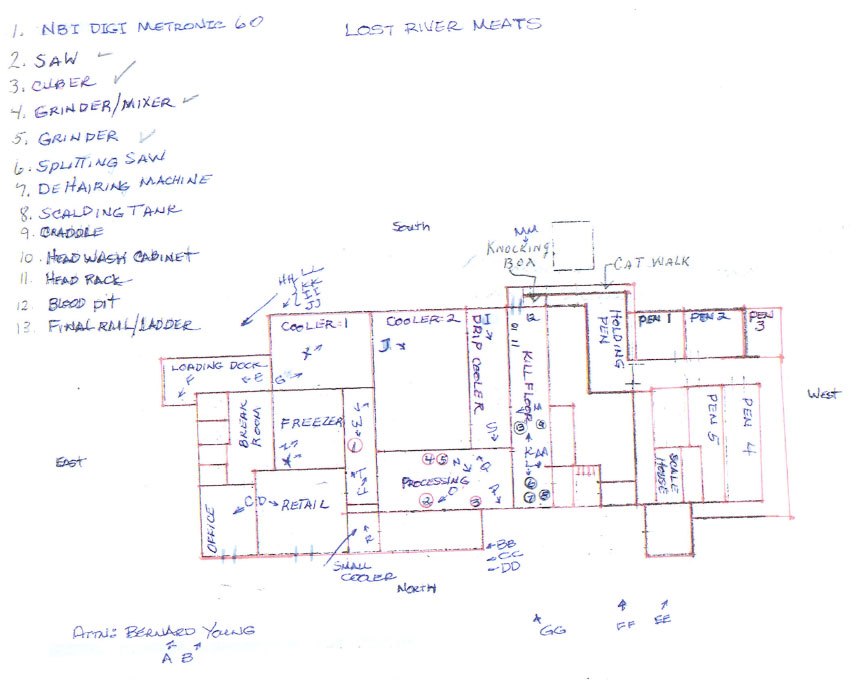 LOST RIVER MEATS
1. NBI DIGI METRONIC 60
2. SAW
3. CUBER
4. GRINDER/MIXER
5. GRINDER
6. SPLITTING SAW
7. DEHAIRING MACHINE
8. SCALDING TANK
9. CRADDLE
10. HEAD WASH CABINET
11. HEAD RACK
12. BLOOD PIT
13. FINAL RAIL/LADDER
South
MM
KNOCKING
BOX
CAT WALK
HH
LL
KK
II
JJ
COOLER:1
COOLER:2
I
DRIP COOLER
10 11
12
KILL FLOOR
HOLDING
PEN
PEN 1
PEN 2
PEN
3
J
LOADING DOCK
F
E
G
BREAK
ROOM
FREEZER
1
S
PEN 5
PEN 4
West
East
SCALE
HOUSE
4 5
PROCESSING
2
3
OFFICE
C
D
RETAIL
SMALL
COOLER
BB
CC
DD
North
GG
FF
EE
ATTN: BERNARD YOUNG
A B